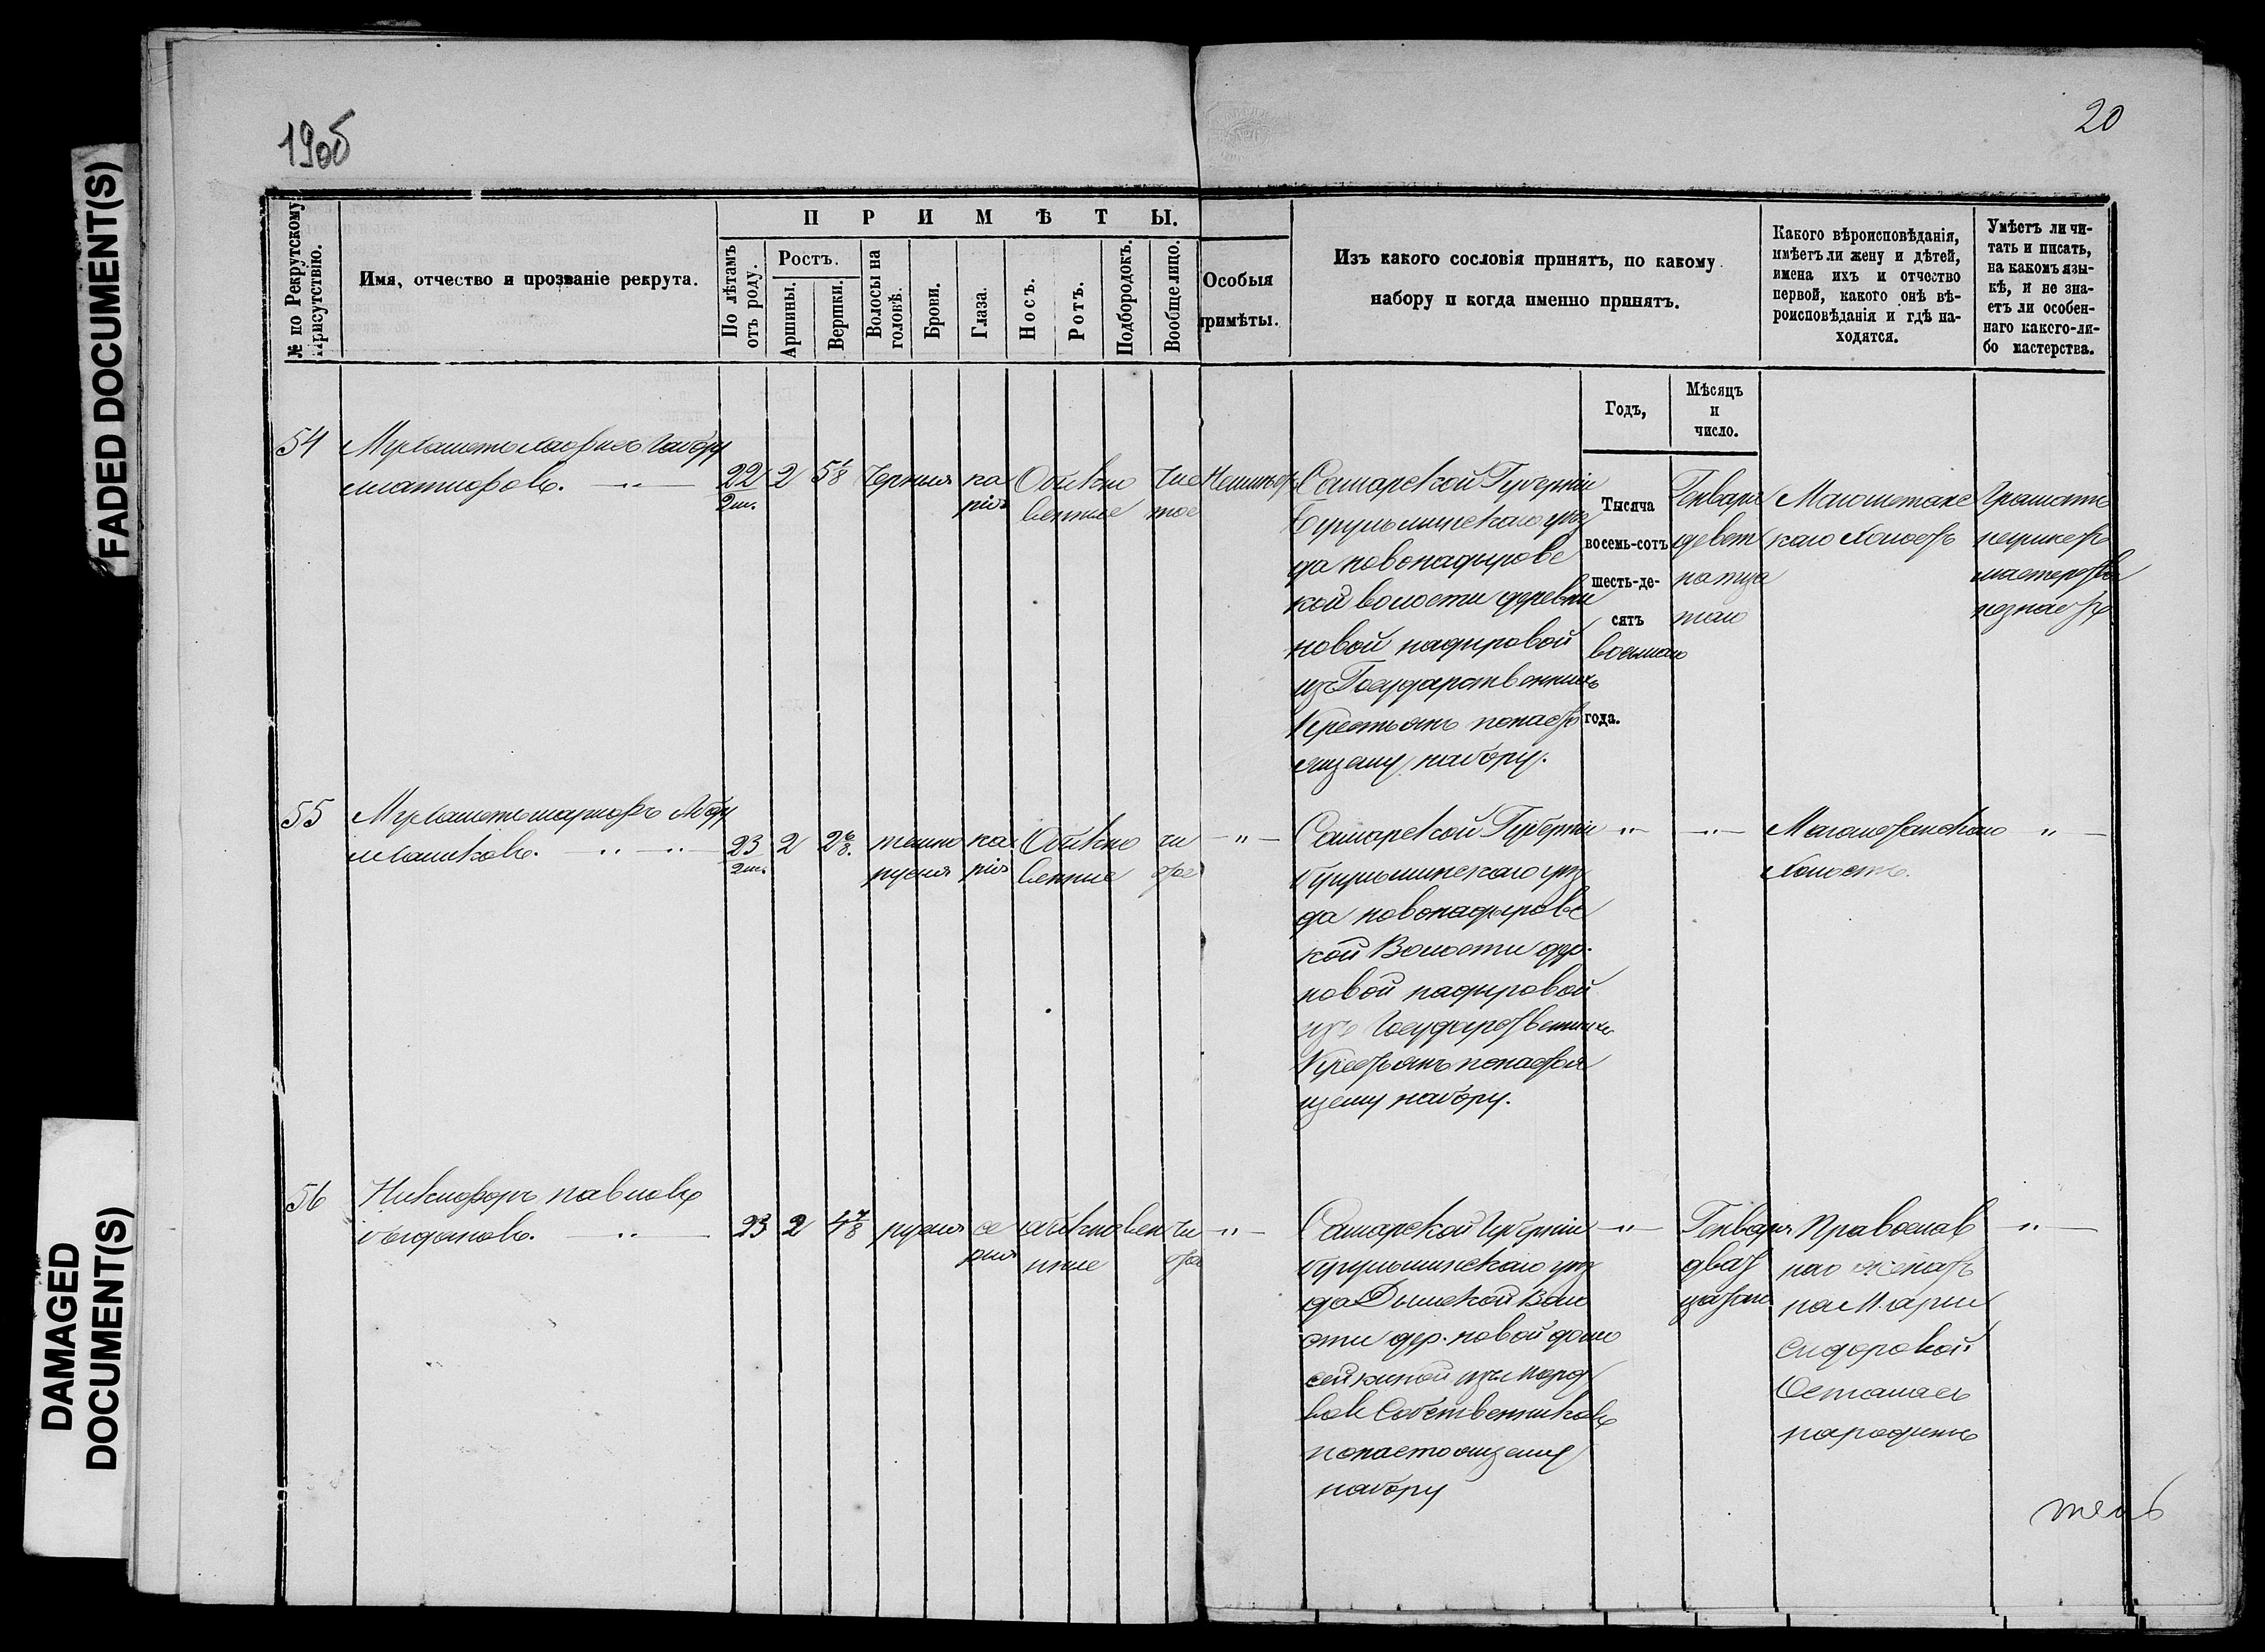 FADED DOCUMENT(S)
DAMAGED
DOCUMENT(S)
19об
20
№ по Рекрутскому
Присутствію.
Имя, отчество и прозваніе рекрута.
ПРИМѢТЫ.
По лѣтамъ
отъ роду.
Ростъ.
Аршины.
Вершки.
Волосы на
головѣ.
Брови.
Глаза.
Носъ.
Ротъ.
Подбородокъ.
Вообще лицо.
Особыя
примѣты.
Изъ какого сословія принятъ, по какому
набору и когда именно принятъ.
Какого вѣроисповѣданія,
имѣетъ ли жену и дѣтей,
имена ихъ и отчество
первой, какого онѣ вѣ-
роисповѣданія и гдѣ на-
ходятся.
Умѣетъ ли чи-
тать и писать,
на какомъ язы-
кѣ, и не зна-
етъ ли особен-
наго какого-ли-
бо мастерства.
Годъ,
Мѣсяцъ
и
число.
54
22
2 м.
2
5 1/8
Черныя
ка
рія
Обыкно
венные
чис
тое
Самарской Губерніи
Бугульминскаго уѣз
да новонадыровс
кой волости деревни
новой надыровой
изъ Государственныхъ
Крестьянъ понаст
ящему набору.
Тысяча
восемь-сотъ
шесть-де-
сятъ
восьмаго
года.
Генваря
девят
натца
таго
Магометанс
каго Холостъ
Грамоте
неумеетъ
мастерства
незнаетъ
55
23
2 м.
2
2 6/8
темно
русыя
ка
рія
Обыкно
венные
чи
стое
" —
Самарской Губерніи
Бугульминскаго уѣз
да новонадыровс
кой Волости дер.
новой надыровой
изъ Государственныхъ
Крестьянъ понастоя
щему набору.
" —
" —
Магометанскаго
Холостъ.
" —
56
Никифоръ павловъ
богдановъ. — " —
23
2
4 7/8
русыя
се
рыя
обыкновен
ные
чи
стое
" —
Самарской Губерніи
Бугульминскаго уѣз
да Дымской Воло
сти дер. новой
изъ морд
вовъ Собственниковъ
понастоящему
набору
" —
Генваря
двад
цатаго
Православ
наго женатъ
на Маріи
Сидоровой
Осталась
народине
" —